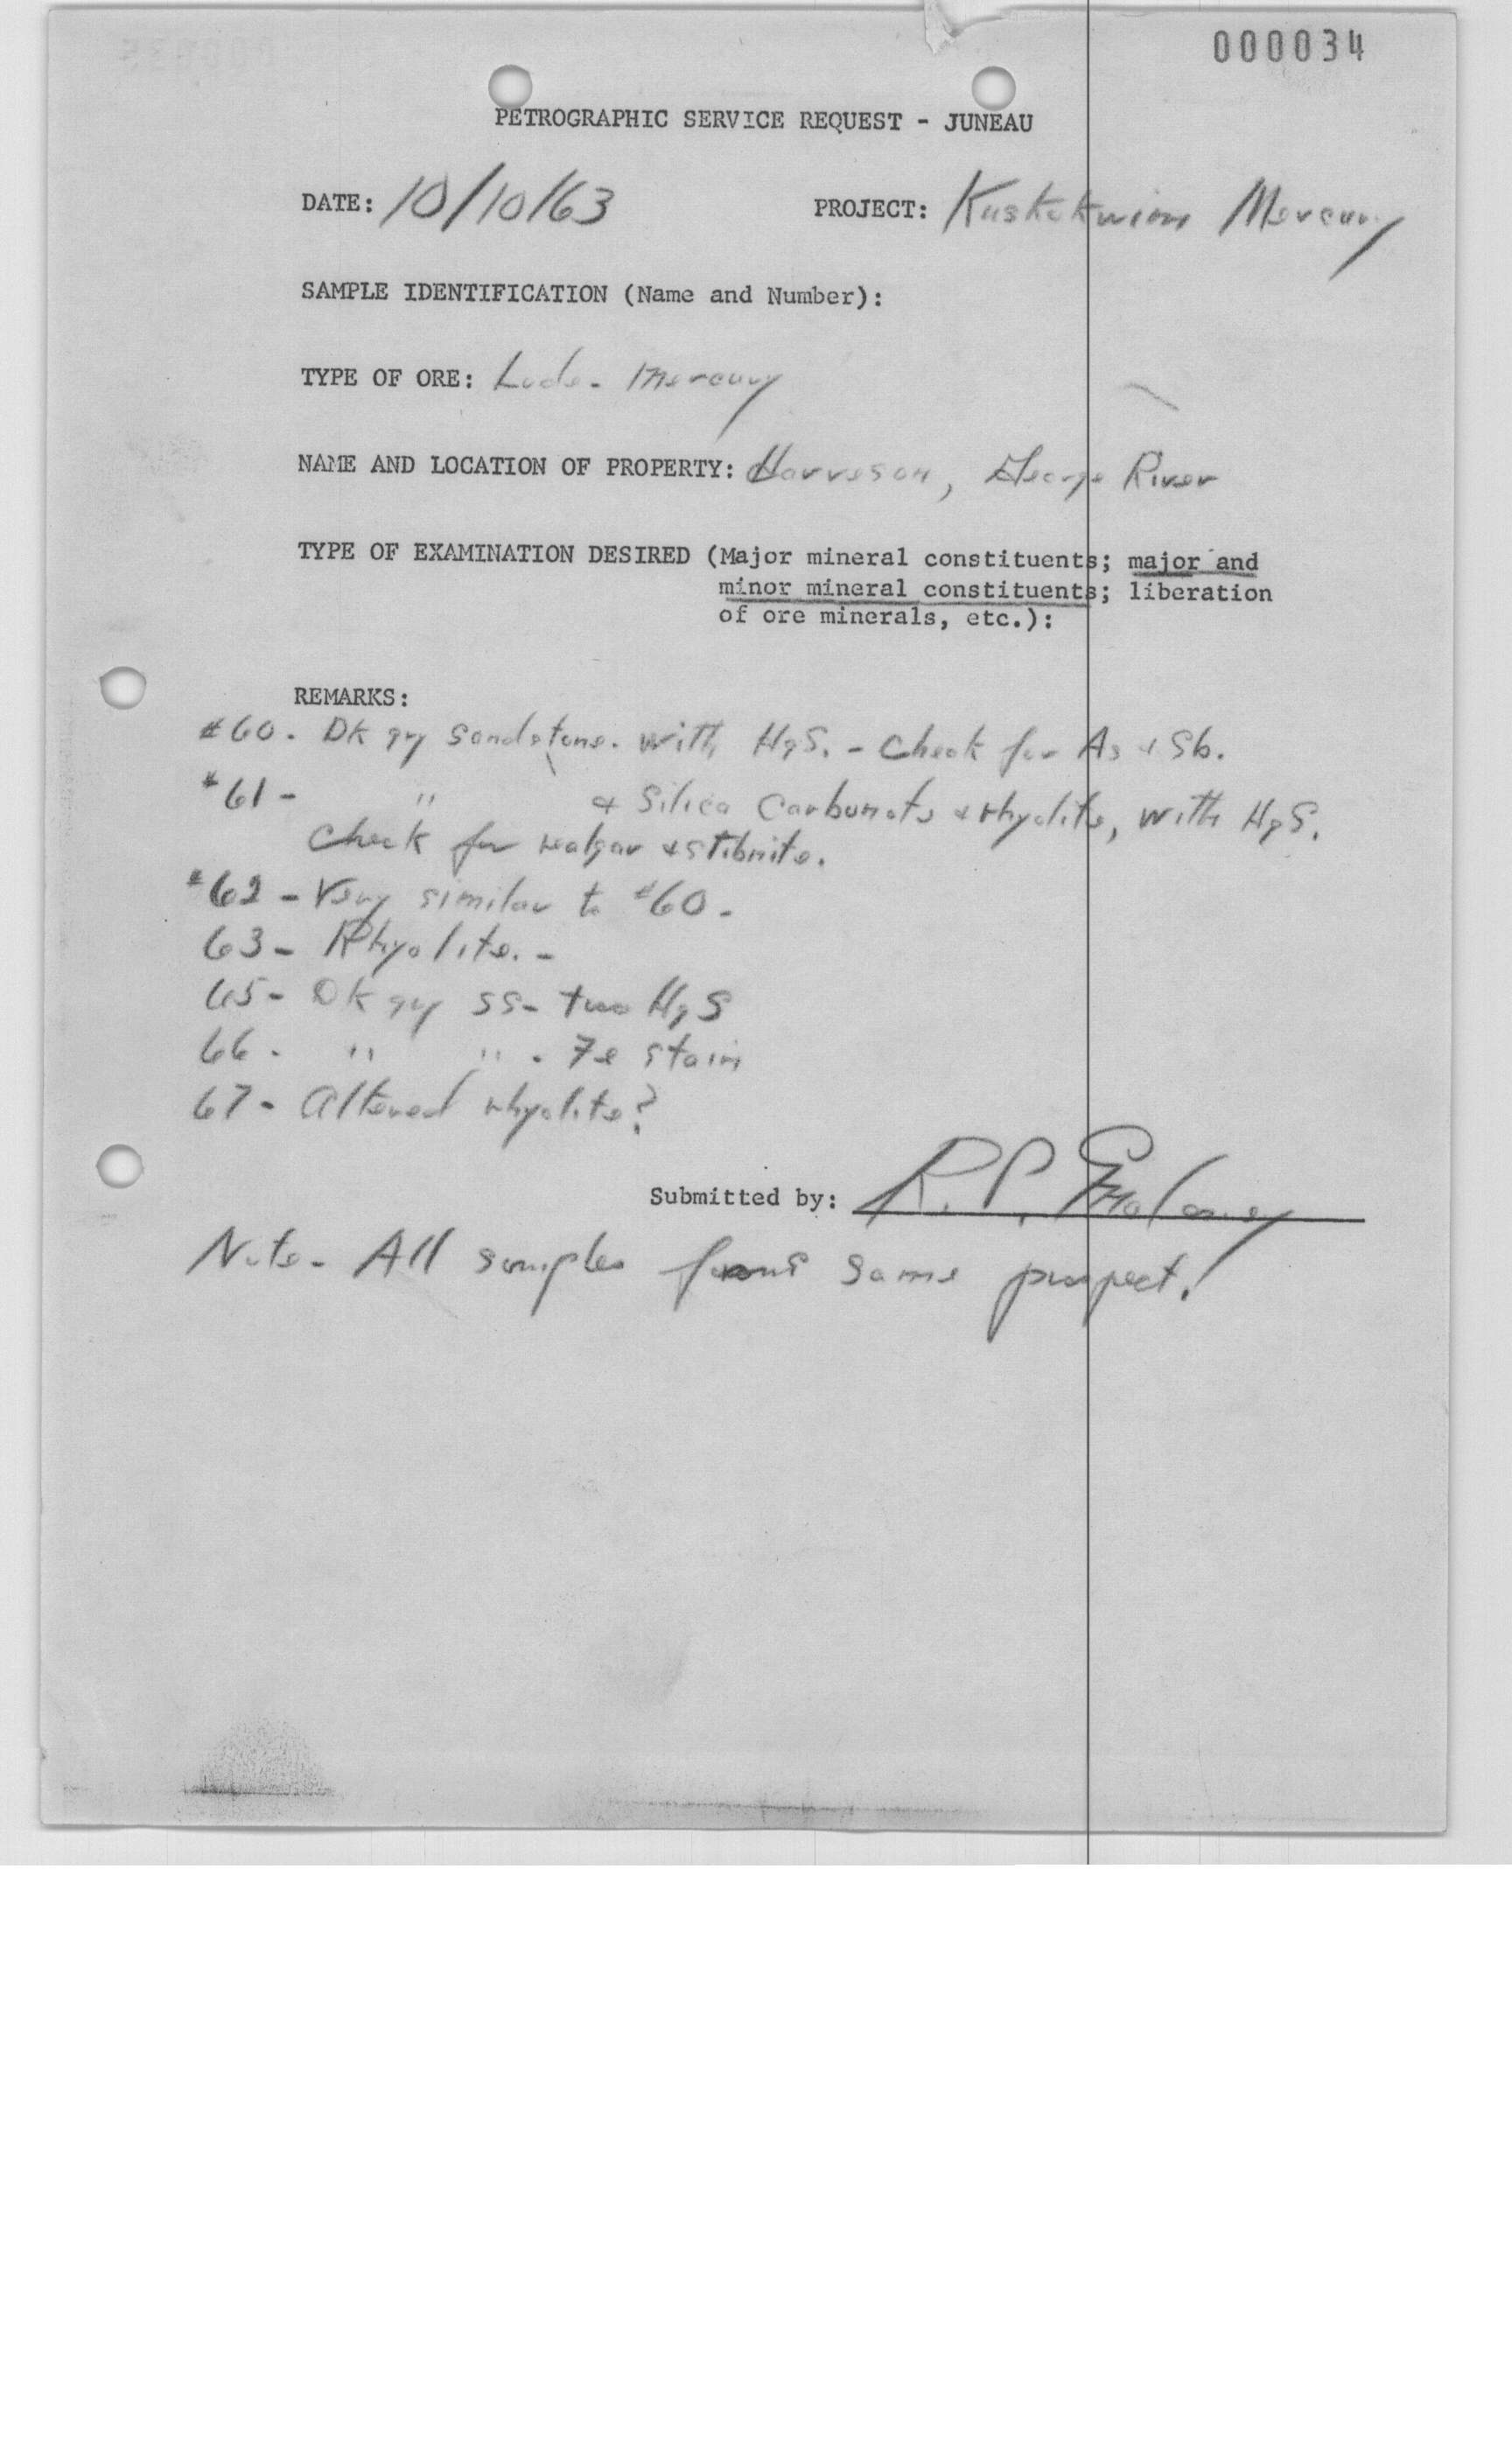 000034
PETROGRAPHIC SERVICE REQUEST - JUNEAU
DATE: 10/10/63 PROJECT: Kuskokwim Mercury
SAMPLE IDENTIFICATION (Name and Number):
TYPE OF ORE: Lode - Mercury
NAME AND LOCATION OF PROPERTY: Harveson, George River
TYPE OF EXAMINATION DESIRED (Major mineral constituents; major and
minor mineral constituents; liberation
of ore minerals, etc.):
REMARKS:
#60 - Dk gy sandstone. with HgS. - Check for As & Sb.
#61 - " & Silica Carbonate & rhyolite, with HgS.
Check for realgar & stibnite.
#62 - Very similar to #60 -
63 - Rhyolite. -
65 - Dk gy SS - HgS
66 - " " - Fe stain
67 - altered rhyolite?
Submitted by: R. P. Maloney
Note - All samples from same prospect!